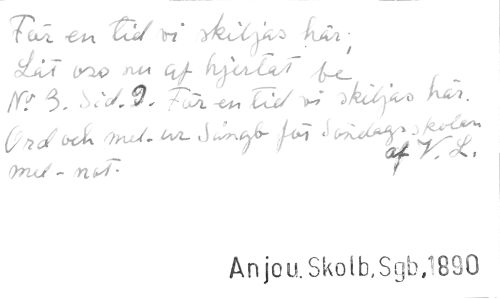 För en tid vi skiljas här;
Låt oss nu af hjertat be
No 3. Sid. 9. För en tid vi skiljas här.
Ord och mel. ur Sångb för Söndagsskolan
af V. L.
mel-not.
Anjou. Skolb. Sgb, 1890